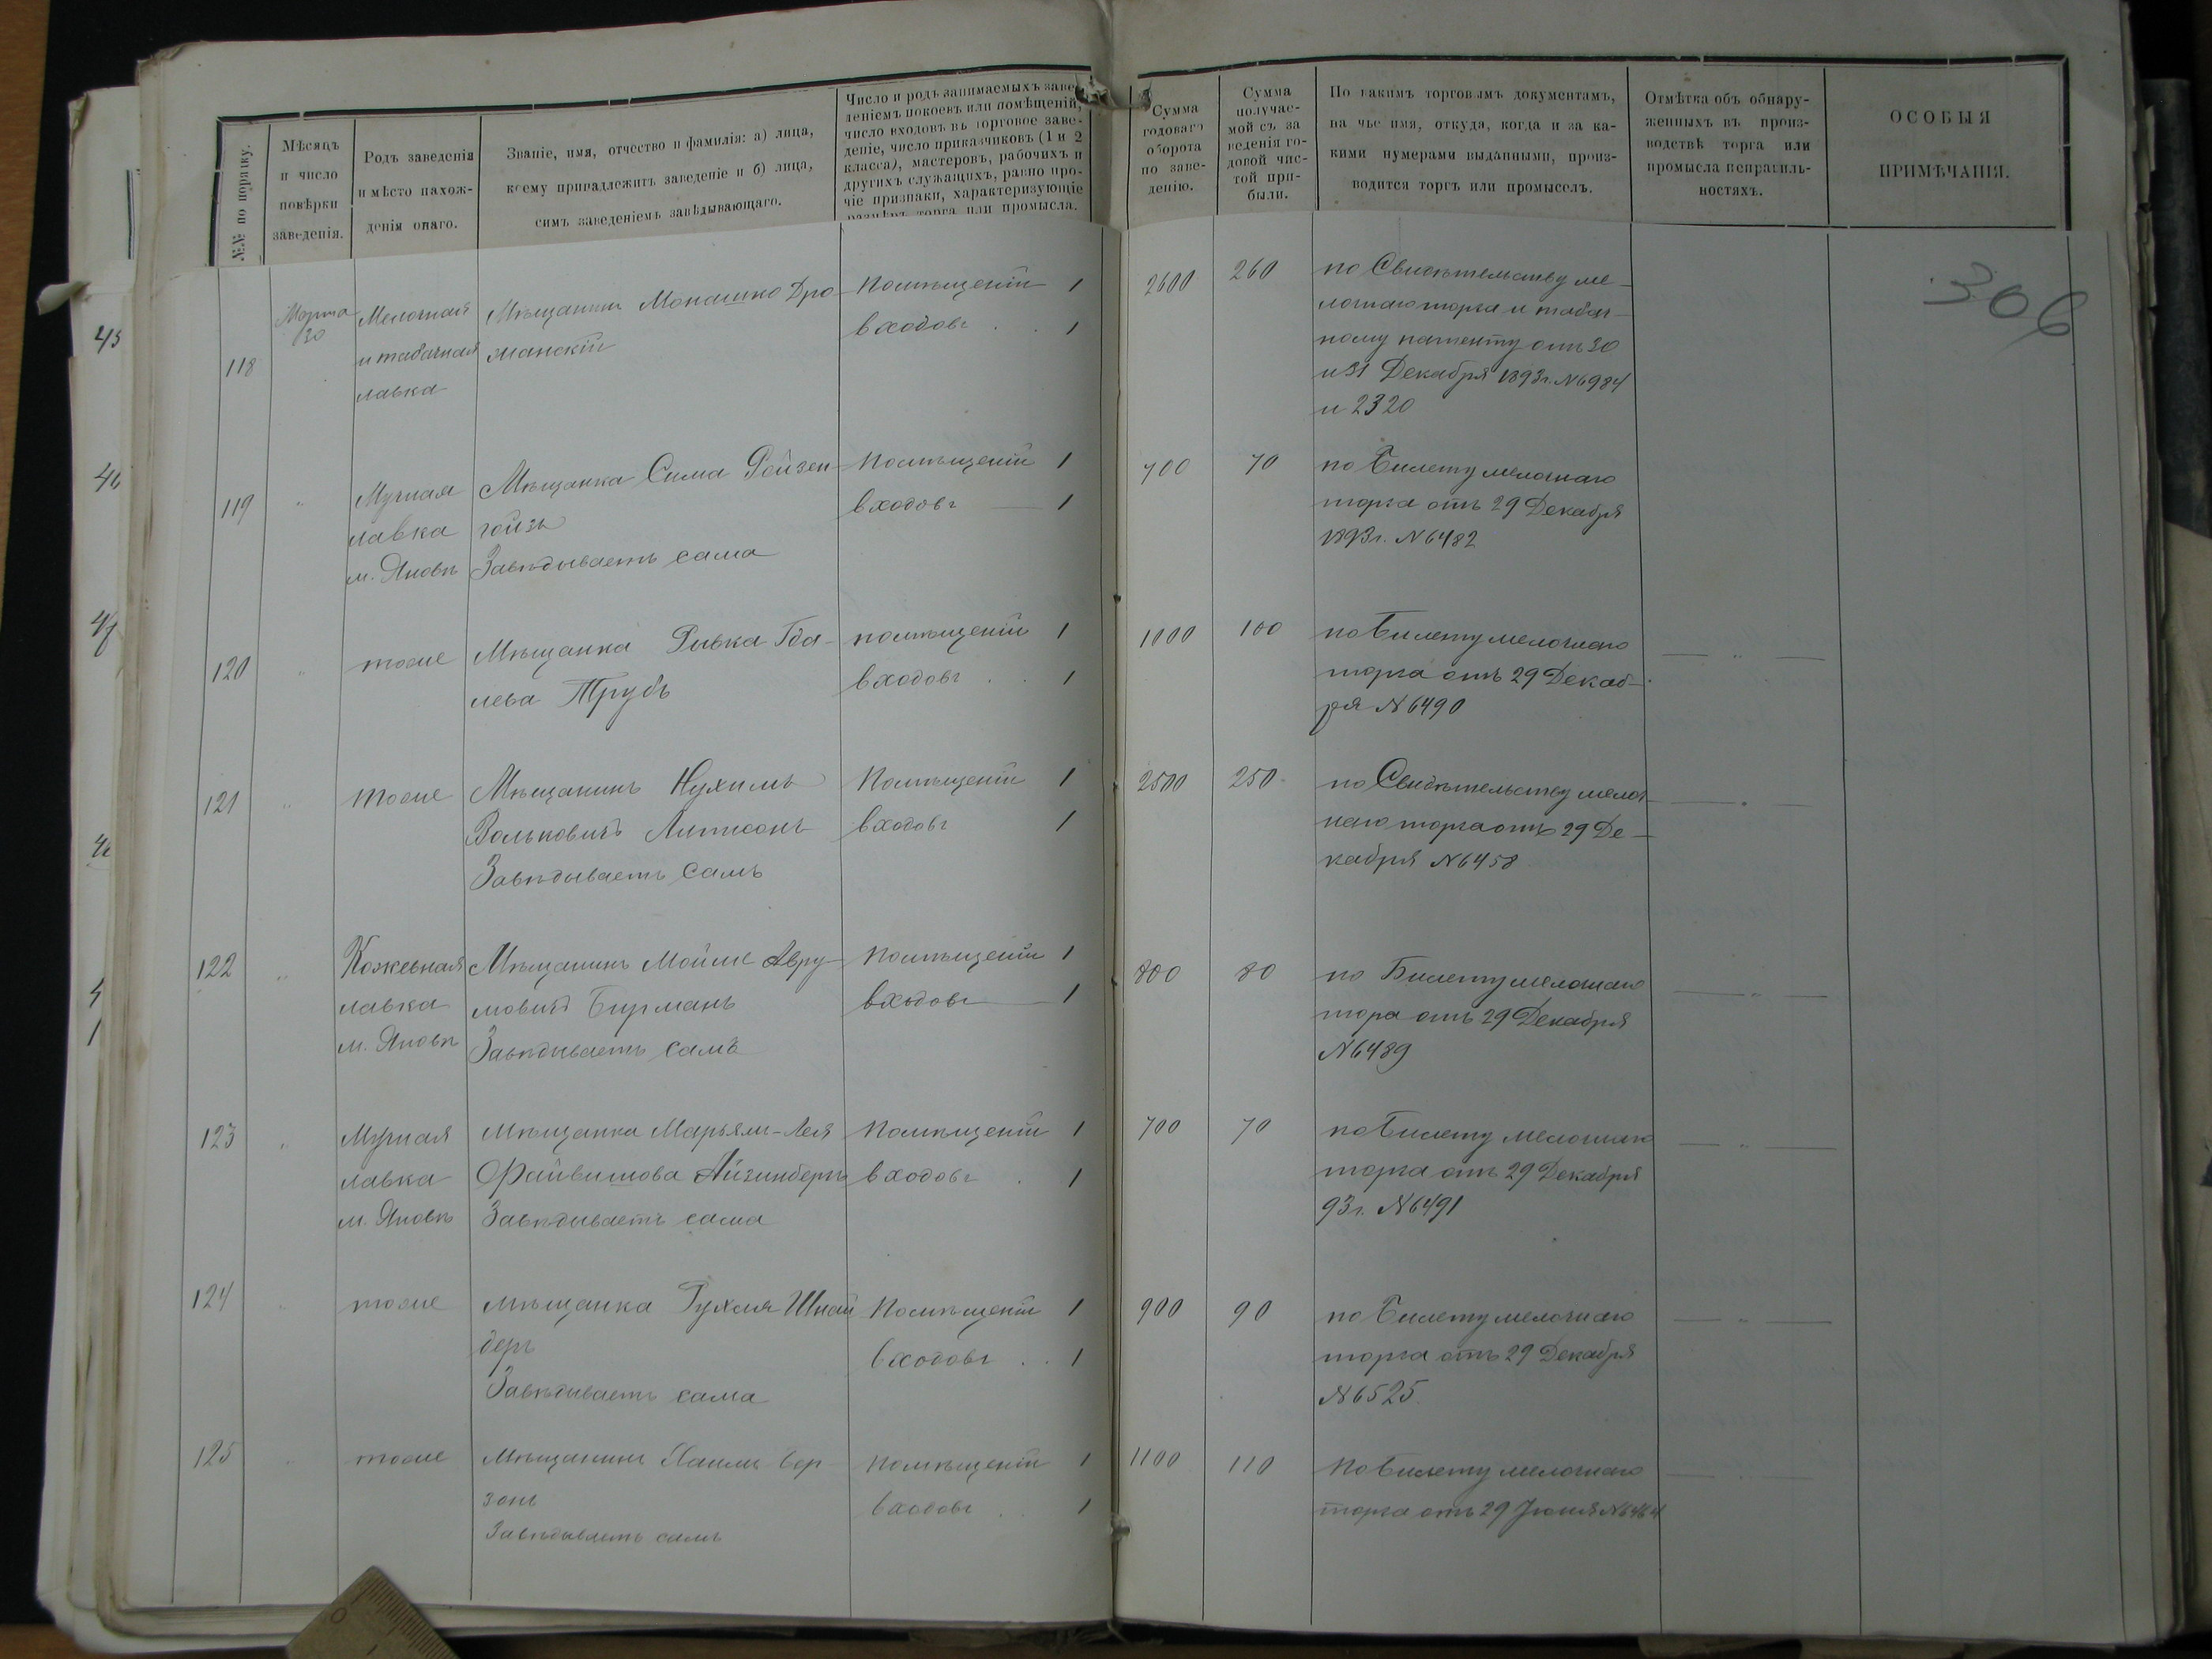 №№ по порядку.
Мѣсяцъ
и число
повѣрки
заведенія.
Родъ заведенія
и мѣсто нахож-
денія онаго.
Званіе, имя, отчество и фамилія: а) лица,
коему принадлежитъ заведеніе и б) лица,
симъ заведеніемъ завѣдывающаго.
Число и родъ занимаемыхъ заве-
деніемъ покоевъ или помѣщеній,
число входовъ въ торговое заве-
деніе, число приказчиковъ (1 и 2
класса), мастеровъ, рабочихъ и
другихъ служащихъ, равно про-
чіе признаки, характеризующіе
размѣръ торга или промысла.
Сумма
годоваго
оборота
по заве-
денію.
Сумма
получае-
мой съ за
веденія го-
довой чис-
той при-
были.
По какимъ торговымъ документамъ,
на чье имя, откуда, когда и за ка-
кими нумерами выданными, произ-
водится торгъ или промыселъ.
Отмѣтка объ обнару-
женныхъ въ произ-
водствѣ торга или
промысла неправиль-
ностяхъ.
ОСОБЫЯ
ПРИМѢЧАНІЯ.
306
118
Марта
30
Мелочная
и табачная
лавка
Мѣщанинъ Дро-
манскій
Помѣщеній 1
входовъ . . 1
2600
260
по Свидѣтельству ме-
лочнаго торга и табач-
ному патенту отъ 30
и 31 Декабря 1893г. №6984
и 2320
119
"
Мучная
лавка
м. Яновъ
Мѣщанка Сима Рейзен-
гойзъ
Завѣдываетъ сама
Помѣщеній 1
входовъ — 1
700
70
по Билету мелочнаго
торга отъ 29 Декабря
1893г. №6482
120
"
тоже
Мѣщанка Ривка Гда-
лева Трубъ
помѣщеній 1
входовъ . . 1
1000
100
по Билету мелочнаго
торга отъ 29 Декаб-
ря №6490
— " —
121
"
тоже
Мѣщанинъ Нухимъ
Вольковичъ
Завѣдываетъ Самъ
Помѣщеній 1
входовъ 1
2500
250
по Свидѣтельству мелоч-
наго торга отъ 29 Де-
кабря №6458
— " —
122
"
Кожевная
лавка
м. Яновъ
Мѣщанинъ Мойше Авру-
мовичъ Бирманъ
Завѣдываетъ самъ
Помѣщеній 1
входовъ — 1
800
80
по Билету мелочнаго
тора отъ 29 Декабря
№6489
— " —
123
"
Мучная
лавка
м. Яновъ
Мѣщанка Марьям-Лея
Файвишова Айзинбергъ
Завѣдываетъ сама
Помѣщеній 1
входовъ . 1
700
70
по Билету мелочнаго
торга отъ 29 Декабря
93г. №6491
— " —
124
"
тоже
мѣщанка Рухля Шнай
деръ
Завѣдываетъ сама
Помѣщеній 1
входовъ . . 1
900
90
по Билету мелочнаго
торга отъ 29 Декабря
№6525
— " —
125
"
тоже
Мѣщанинъ Хаимъ
зонъ
Завѣдываетъ самъ
помѣщеній 1
входовъ . . 1
1100
110
по Билету мелочнаго
торга отъ 29 №6464
— " —